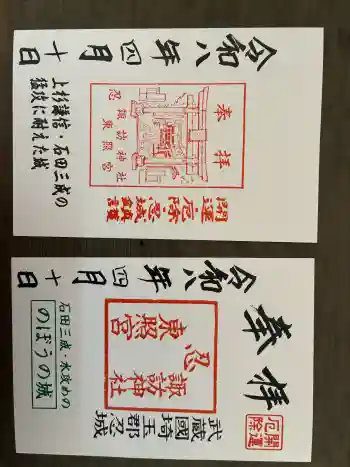 奉拝
開運・厄除・忍城鎮護
忍
諏訪神社
東照宮
令和八年四月十日
上杉謙信・石田三成の
猛攻に耐えた城
奉拝
開運
厄除
武蔵國埼玉郡忍城
忍
諏訪神社
東照宮
令和八年四月十日
石田三成・水攻めの
のぼうの城